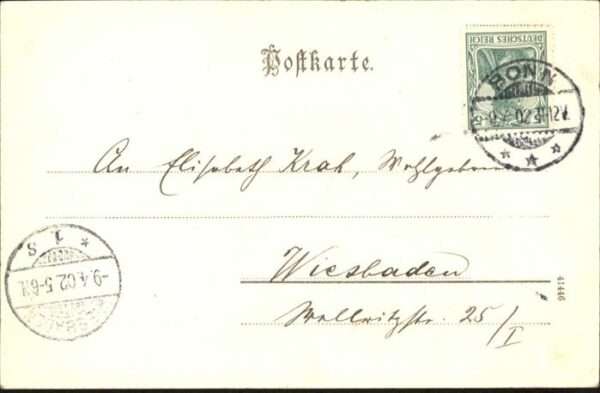 Postkarte.
DEUTSCHES REICH
BONN
An Elisabeth Krah, Wohlgeboren
Wiesbaden
Wellritzstr. 25/I
41446
* 1. S
-9.4.02.5-6N